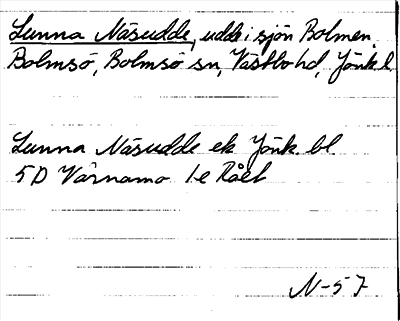 Lunna Näsudde, udde i sjön Bolmen
Bolmsö, Bolmsö sn, Västbo hd, Jönk. l
Lunna Näsudde ek Jönk. bl.
5D Värnamo 1e Råek
N-57